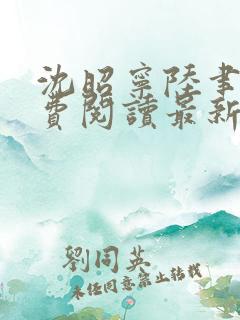 沈昭寧陸聿
費閱讀最新
劉同英
未经同意禁止转载